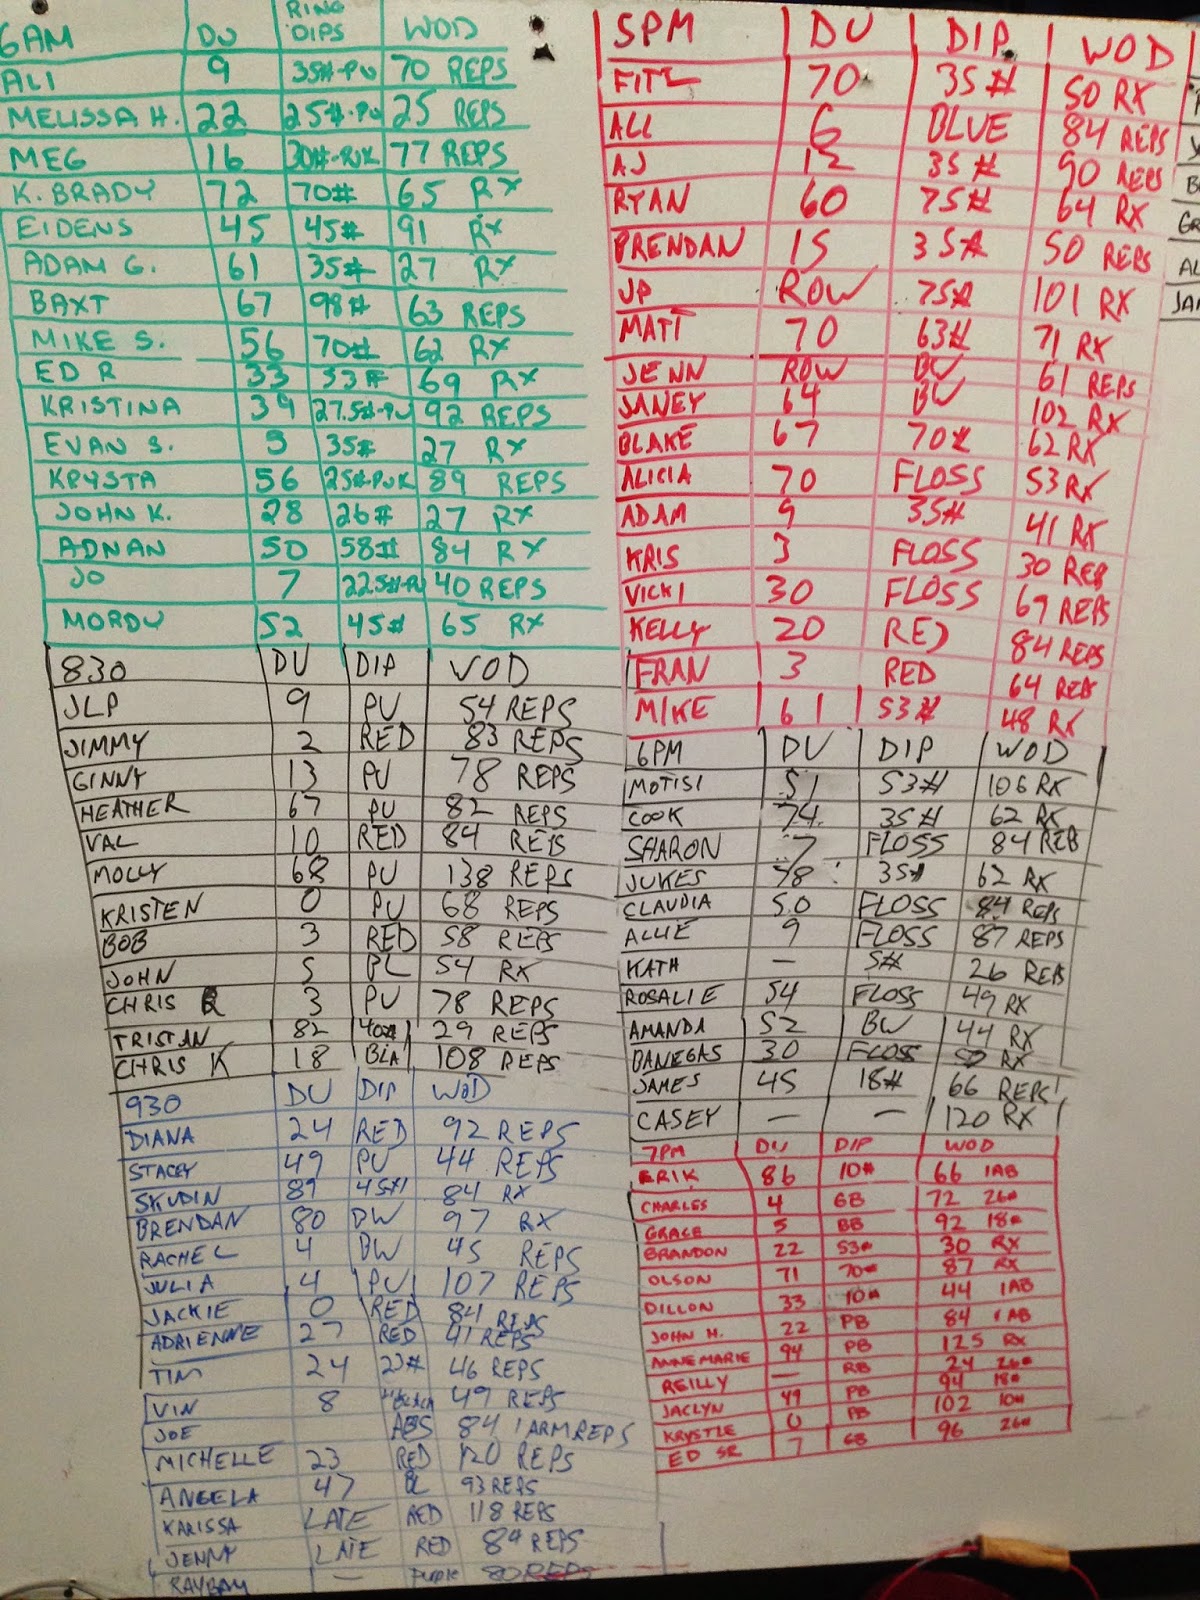 6AM DU RING DIPS WOD
ALI 9 35#-PU 70 REPS
MELISSA H. 22 25#-PU 25 REPS
MEG 16 77 REPS
K. BRADY 72 70# 65 RX
EIDENS 45 45# 91 RX
ADAM G. 61 35# 27 RX
BAXT 67 98# 63 REPS
MIKE S. 56 70# 62 RX
ED R 33 53# 69 RX
KRISTINA 39 27.5#-PU 92 REPS
EVAN S. 3 35# 27 RX
KRYSTA 56 89 REPS
JOHN K. 28 26# 27 RX
ADNAN 50 58# 84 RX
JO 7 40 REPS
MORDY 52 45# 65 RX
830 DU DIP WOD
JLP 9 PU 54 REPS
JIMMY 2 RED 83 REPS
GINNY 13 PU 78 REPS
HEATHER 67 PU 82 REPS
VAL 10 RED 84 REPS
MOLLY 68 PU 138 REPS
KRISTEN 0 PU 68 REPS
BOB 3 RED 58 REPS
JOHN 5 54 RX
CHRIS 3 PU 78 REPS
TRISTAN 82 40# 29 REPS
CHRIS K 18 BLA 108 REPS
930 DU DIP WOD
DIANA 24 RED 92 REPS
STACEY 49 PU 44 REPS
SKUDIN 89 45# 84 RX
BRENDAN 80 BW 97 RX
RACHEL 4 BW 45 REPS
JULIA 4 PU 107 REPS
JACKIE 0 RED 84 REPS
ADRIENNE 27 RED 41 REPS
TIM 24 23# 46 REPS
VIN 8 49 REPS
JOE ABS 84 1 ARM REPS
MICHELLE 23 RED 120 REPS
ANGELA 47 BL 93 REPS
KARISSA LATE RED 118 REPS
JENNY LATE RED 89 REPS
RAYBAY — purple 80 REPS
5PM DU DIP WOD
FITZ 70 35# 50 RX
ALI 6 BLUE 84 REPS
AJ 12 35# 90 REPS
RYAN 60 75# 64 RX
BRENDAN 15 35# 50 REPS
JP ROW 75# 101 RX
MATT 70 63# 71 RX
JENN ROW BW 61 REPS
JANEY 64 BW 102 RX
BLAKE 67 70# 62 RX
ALICIA 70 FLOSS 53 RX
ADAM 9 35# 41 RX
KRIS 3 FLOSS 30 REPS
VICKI 30 FLOSS 69 REPS
KELLY 20 RED 84 REPS
FRAN 3 RED 64 REPS
MIKE 61 53# 48 RX
6PM DU DIP WOD
MOTISI 51 53# 106 RX
COOK 74 35# 62 RX
SHARON 7 FLOSS 84 REPS
JUKES 78 35# 62 RX
CLAUDIA 50 FLOSS 84 REPS
ALLIE 9 FLOSS 87 REPS
KATH — 5# 26 REPS
ROSALIE 54 FLOSS 49 RX
AMANDA 52 BW 44 RX
BANEGAS 30 FLOSS RX
JAMES 45 18# 66 REPS
CASEY — — 120 RX
7PM DU DIP WOD
ERIK 86 10# 66 1AB
CHARLES 4 GB 72 26#
GRACE 5 BB 92 18#
BRANDON 22 53# 30 RX
OLSON 71 70# 87 RX
DILLON 33 10# 44 1AB
JOHN H. 22 PB 84 1AB
ANNEMARIE 94 PB 125 RX
REILLY — RB 24 26#
JACLYN 49 PB 94 18#
KRYSTLE 0 PB 102 10#
ED SR 7 GB 96 26#